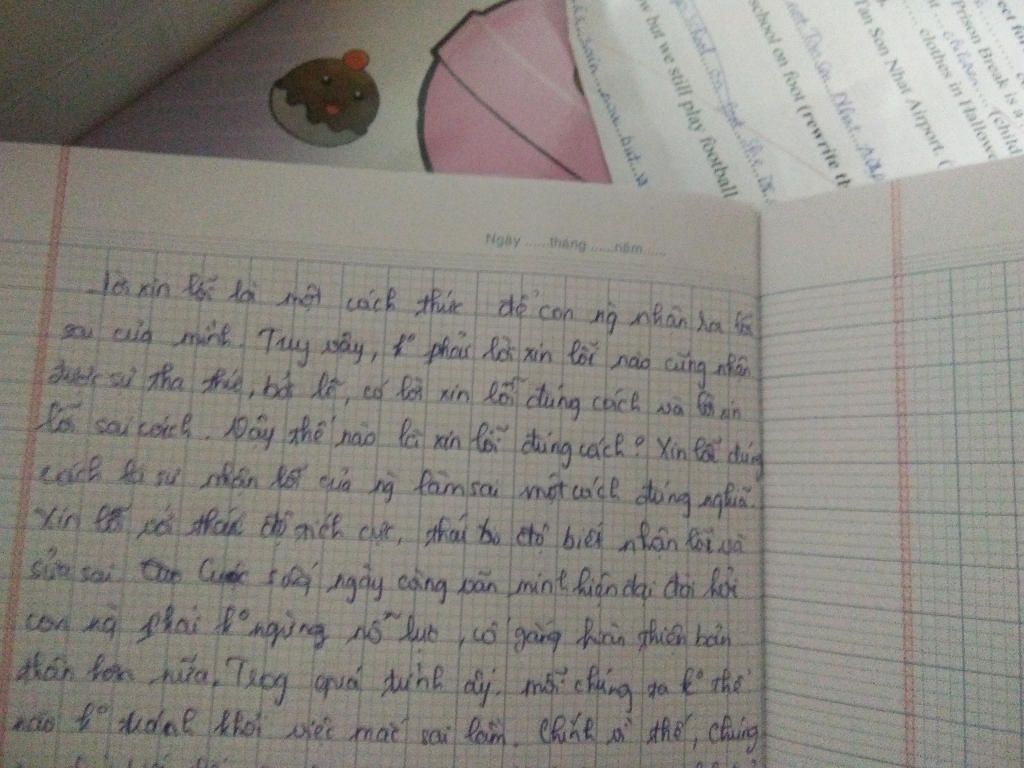 Ngày ......tháng ......năm .....
lời xin lỗi là một cách thức để con ng̀ nhận ra lỗi
sai của mình. Tuy vậy, k° phải lời xin lỗi nào cũng nhận
được sự tha thứ, bởi lẽ, có lời xin lỗi đúng cách và lời xin
lỗi sai cách. Vậy thế nào là xin lỗi đúng cách? Xin lỗi đúng
cách là sự nhận lỗi của ng̀ làm sai một cách đúng nghĩa.
Xin lỗi có thái độ tích cực, thái độ biết nhận lỗi và
sửa sai Cuộc sống ngày càng văn minh hiện đại đòi hỏi
con ng̀ phải k° ngừng nỗ lực, cố gắng hoàn thiện bản
thân hơn nữa. Trog quá trình ấy, mỗi chúng ta k° thể
nào k° tránh khỏi việc mắc sai lầm. Chính vì thế, chúng
w but we still play football
school on foot (rewrite th
Tan Son Nhat Airport. (
Prison Break is a
clothes in Hallowe
(child